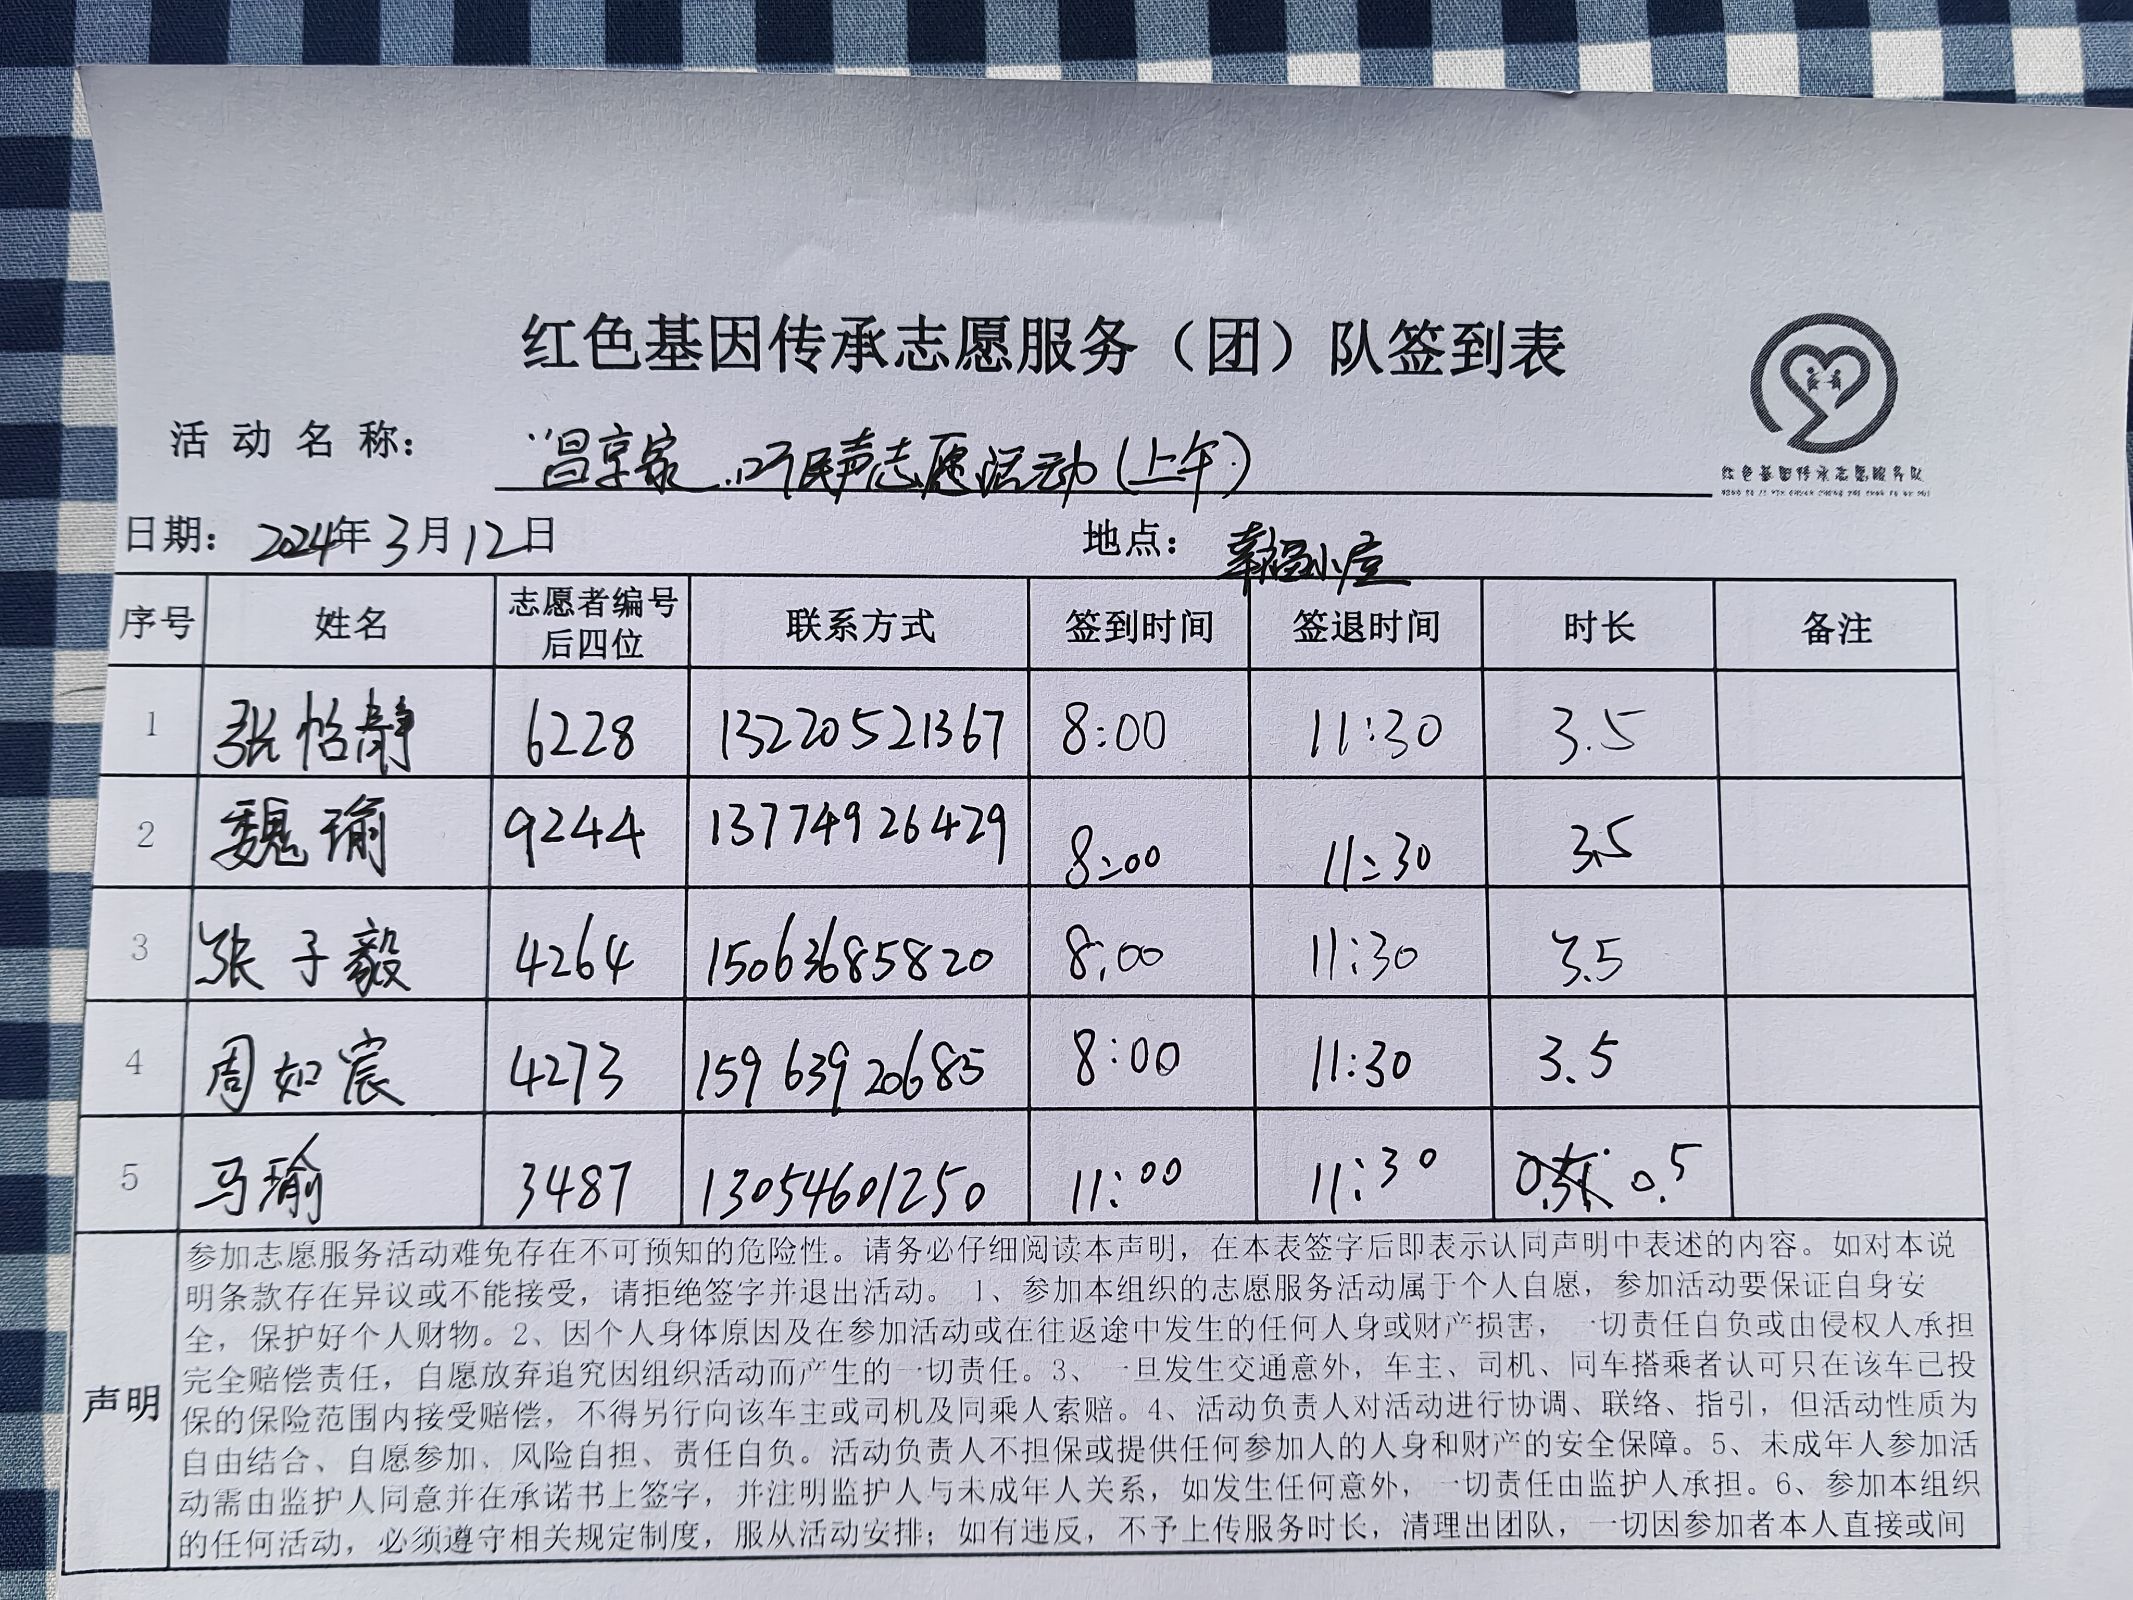 红色基因传承志愿服务（团）队签到表
红色基因传承志愿服务队
活动名称： “昌享家”听民声志愿活动（上午）
日期： 2024年3月12日 地点： 幸福小屋
序号 姓名 志愿者编号后四位 联系方式 签到时间 签退时间 时长 备注
1 张怡静 6228 13220521367 8:00 11:30 3.5
2 魏瑜 9244 13774926429 8:00 11:30 3.5
3 张子毅 4264 15063685820 8:00 11:30 3.5
4 周如宸 4273 15963920685 8:00 11:30 3.5
5 马瑜 3487 13054601250 11:00 11:30 0.5
声明
参加志愿服务活动难免存在不可预知的危险性。请务必仔细阅读本声明，在本表签字后即表示认同声明中表述的内容。如对本说
明条款存在异议或不能接受，请拒绝签字并退出活动。 1、参加本组织的志愿服务活动属于个人自愿，参加活动要保证自身安
全，保护好个人财物。2、因个人身体原因及在参加活动或在往返途中发生的任何人身或财产损害，一切责任自负或由侵权人承担
完全赔偿责任，自愿放弃追究因组织活动而产生的一切责任。3、一旦发生交通意外，车主、司机、同车搭乘者认可只在该车已投
保的保险范围内接受赔偿，不得另行向该车主或司机及同乘人索赔。4、活动负责人对活动进行协调、联络、指引，但活动性质为
自由结合、自愿参加、风险自担、责任自负。活动负责人不担保或提供任何参加人的人身和财产的安全保障。5、未成年人参加活
动需由监护人同意并在承诺书上签字，并注明监护人与未成年人关系，如发生任何意外，一切责任由监护人承担。6、参加本组织
的任何活动，必须遵守相关规定制度，服从活动安排；如有违反，不予上传服务时长，清理出团队，一切因参加者本人直接或间